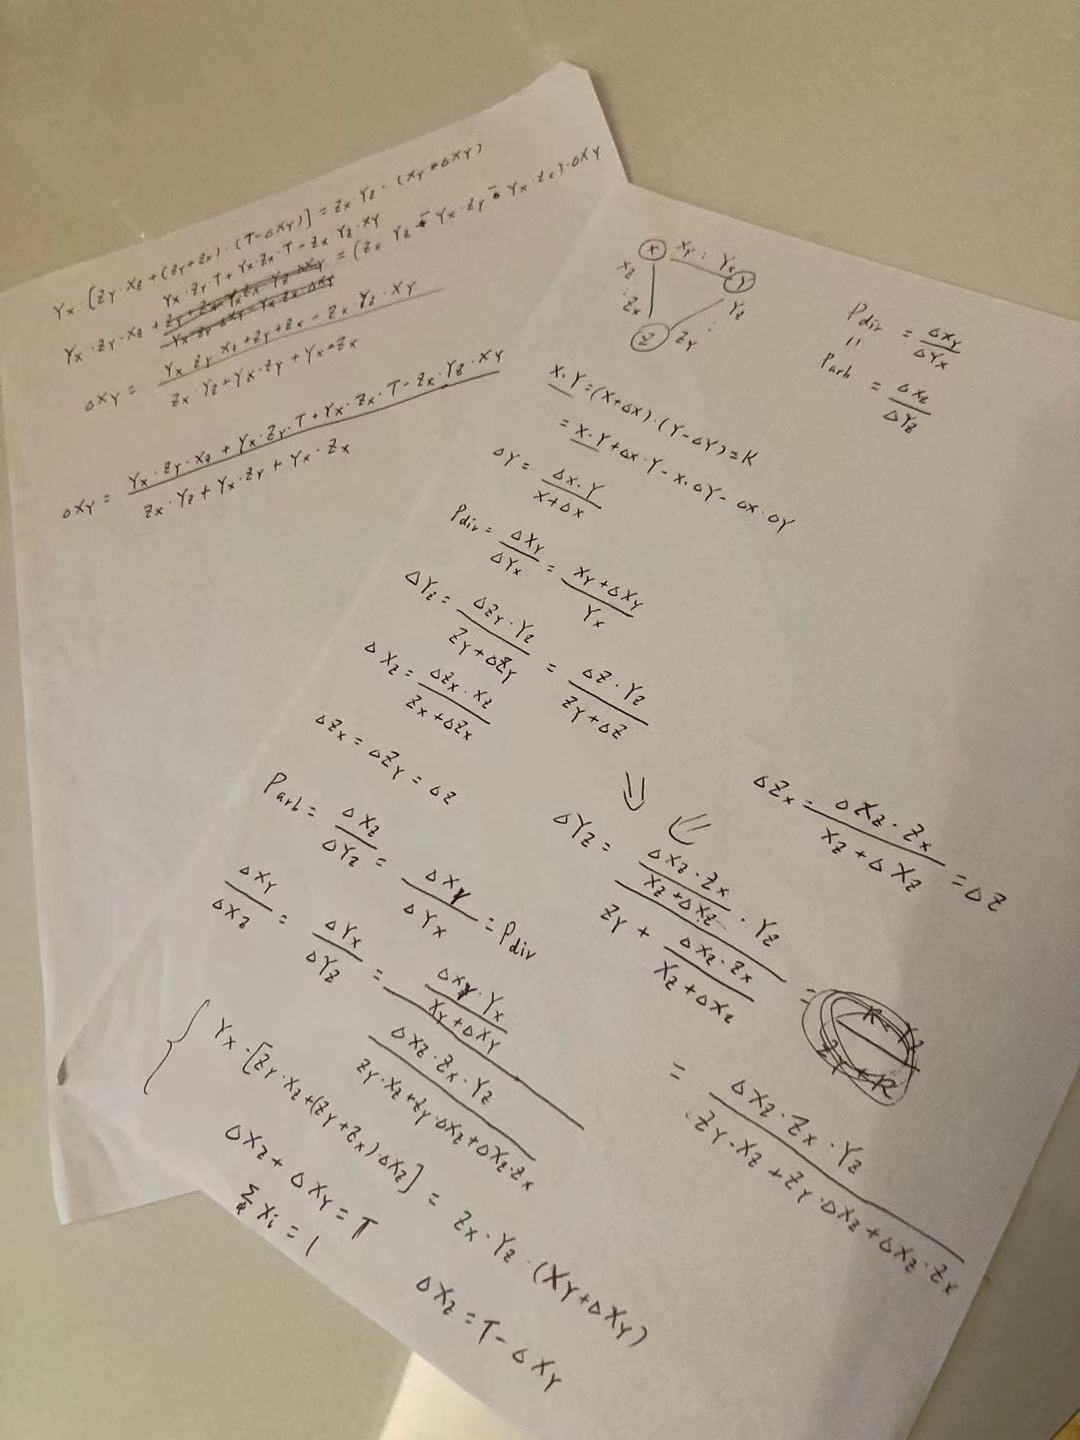 Yx · [Zy · Xz + (Zy+Zx) · (T-ΔXy)] = Zx · Yz · (Xy + ΔXy)
Yx · Zy · T + Yx · Zx · T - Zx · Yz · Xy
Yx · Zy · Xz + = (Zx Yz + Yx · Zy + Yx · Zx) · ΔXy
ΔXy = (Yx Zy Xz + Zy + Zx - Zx Yz · Xy) / (Zx · Yz + Yx · Zy + Yx · Zx)
ΔXy = (Yx · Zy · Xz + Yx · Zy · T + Yx · Zx · T - Zx · Yz · Xy) / (Zx · Yz + Yx · Zy + Yx · Zx)
X Xy : Yx Y
Xz : Zx
Yz : Zy
Z
Pdiv = ΔXy / ΔYx
"
Parb = ΔXz / ΔYz
X · Y = (X+ΔX) · (Y-ΔY) = K
= X · Y + ΔX · Y - X · ΔY - ΔX · ΔY
ΔY = ΔX · Y / X+ΔX
Pdiv = ΔXy / ΔYx = Xy + ΔXy / Yx
ΔYz = ΔZy · Yz / Zy + ΔZy = ΔZ · Yz / Zy + ΔZ
ΔXz = ΔZx · Xz / Zx + ΔZx
ΔZx = ΔZy = ΔZ
⇓ ⇐
ΔZx = ΔXz · Zx / Xz + ΔXz = ΔZ
ΔYz = (ΔXz · Zx / Xz + ΔXz · Yz) / (Zy + ΔXz · Zx / Xz + ΔXz) =
= ΔXz · Zx · Yz / Zy · Xz + Zy · ΔXz + ΔXz · Zx
Parb = ΔXz / ΔYz = ΔXy / ΔYx = Pdiv
ΔXy / ΔXz = ΔYx / ΔYz = (ΔXy · Yx / Xy + ΔXy) / (ΔXz · Zx · Yz / Zy · Xz + Zy · ΔXz + ΔXz · Zx)
{ Yx · [Zy · Xz + (Zy + Zx) · ΔXz] = Zx · Yz · (Xy + ΔXy)
ΔXz + ΔXy = T
Σ Xi = 1
ΔXz = T - ΔXy